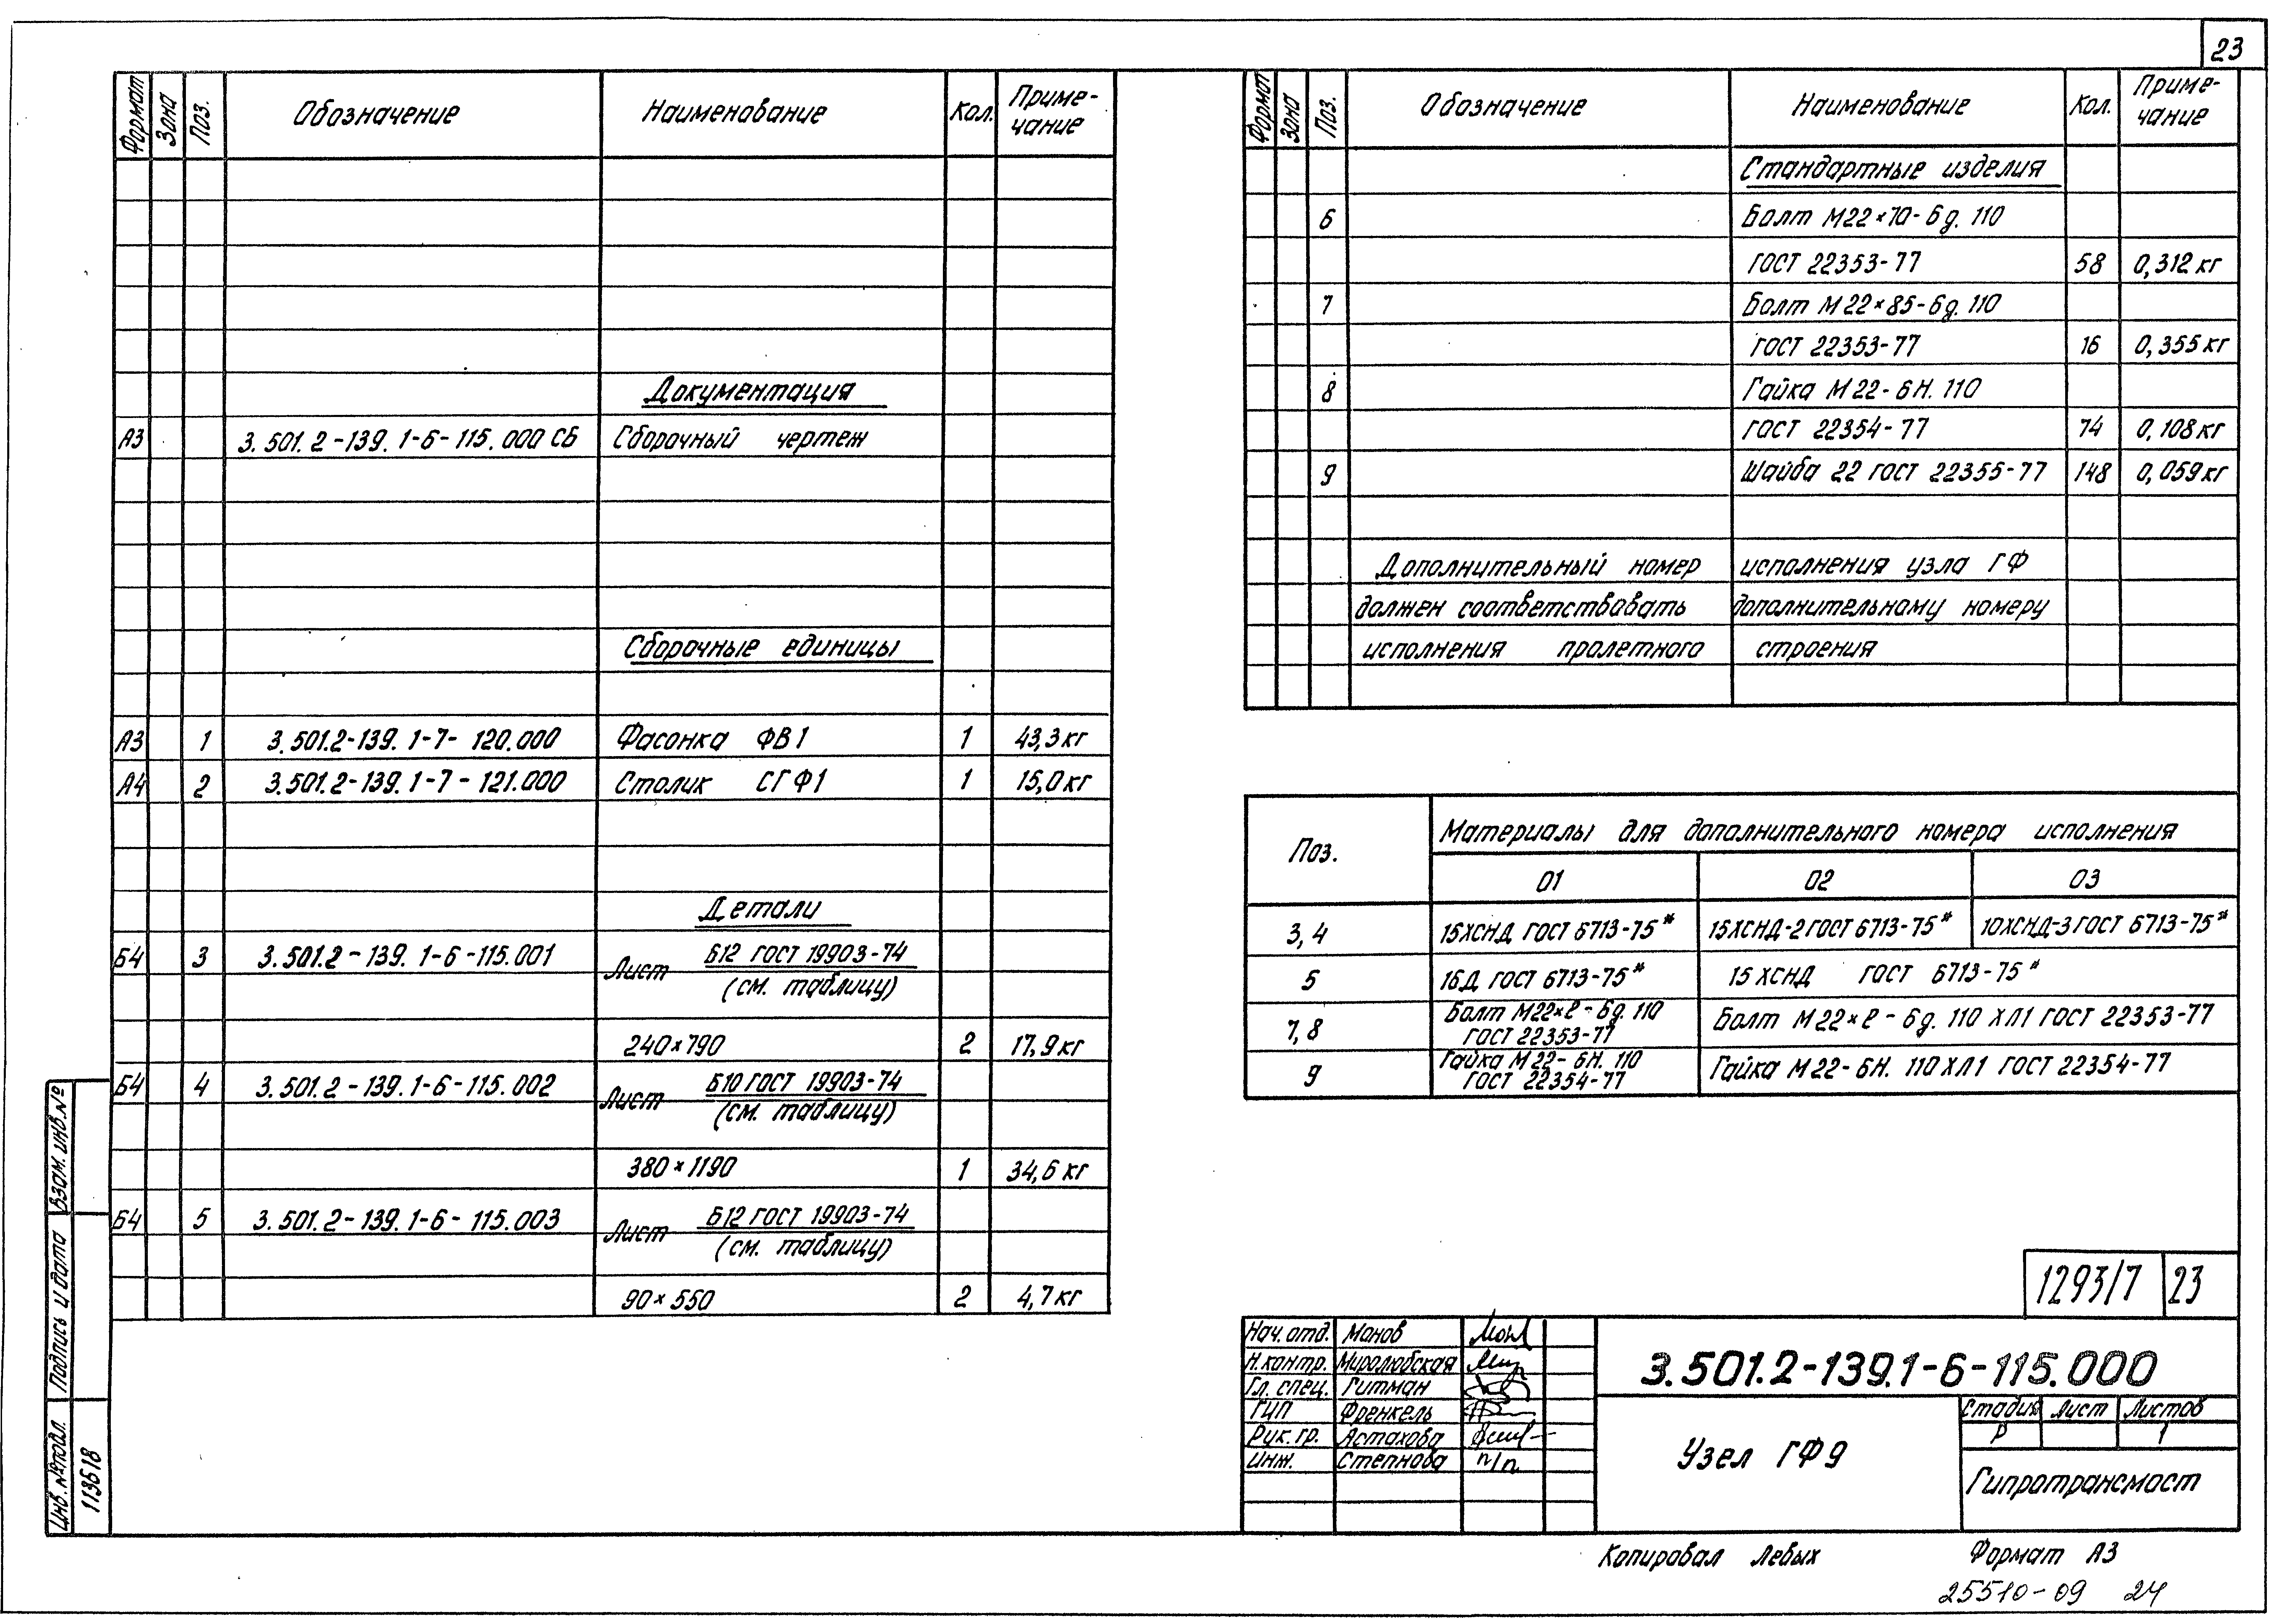 23
Формат Зона Поз. Обозначение Наименование Кол. Приме-
чание
Документация
А3 3.501.2-139.1-6-115.000 СБ Сборочный чертеж
Сборочные единицы
А3 1 3.501.2-139.1-7-120.000 Фасонка ФВ1 1 43,3 кг
А4 2 3.501.2-139.1-7-121.000 Столик СГФ1 1 15,0 кг
Детали
Б4 3 3.501.2-139.1-6-115.001 Лист Б12 ГОСТ 19903-74
(см. таблицу)
240×790 2 17,9 кг
Б4 4 3.501.2-139.1-6-115.002 Лист Б10 ГОСТ 19903-74
(см. таблицу)
380×1190 1 34,6 кг
Б4 5 3.501.2-139.1-6-115.003 Лист Б12 ГОСТ 19903-74
(см. таблицу)
90×550 2 4,7 кг
Формат Зона Поз. Обозначение Наименование Кол. Приме-
чание
Стандартные изделия
6 Болт М22×70-6g.110
ГОСТ 22353-77 58 0,312 кг
7 Болт М22×85-6g.110
ГОСТ 22353-77 16 0,355 кг
8 Гайка М22-6Н.110
ГОСТ 22354-77 74 0,108 кг
9 Шайба 22 ГОСТ 22355-77 148 0,059 кг
Дополнительный номер исполнения узла ГФ
должен соответствовать дополнительному номеру
исполнения пролетного строения
Поз. Материалы для дополнительного номера исполнения
01 02 03
3,4 15ХСНД ГОСТ 6713-75* 15ХСНД-2 ГОСТ 6713-75* 10ХСНД-3 ГОСТ 6713-75*
5 16Д ГОСТ 6713-75* 15ХСНД ГОСТ 6713-75*
7,8 Болт М22×ℓ-6g.110
ГОСТ 22353-77 Болт М22×ℓ-6g.110 ХЛ1 ГОСТ 22353-77
9 Гайка М22-6Н.110
ГОСТ 22354-77 Гайка М22-6Н.110ХЛ1 ГОСТ 22354-77
1293/7 23
Нач. отд. Монов
Н.контр. Миролюбская
Гл. спец. Гитман
ГИП Френкель
Рук. гр. Астахова
Инж. Степнова п/п
3.501.2-139.1-6-115.000
Узел ГФ9
Стадия Лист Листов
Р 1
Гипротрансмост
Инв. №подл. Подпись и дата Взам. инв. №
113518
Копировал Левых Формат А3
25510-09 24